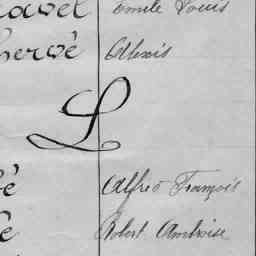 Emile Louis
Hervé Alexis
L
Alfred François
Robert Ambroise